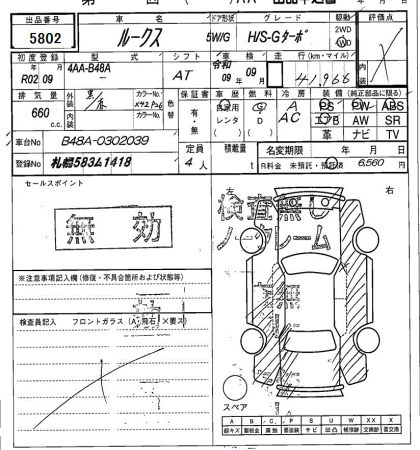 出品番号 車名 ドア形状 グレード 駆動 評価点
5802 ルークス 5W/G H/S-Gターボ 2WD
初度登録 型式 シフト 車検 走行(km・マイル)
R02 09 4AA-B48A AT 令和 09年 09月 41,966
排気量 外装 カラーNo. 色替 保証書 車歴 燃料 冷房 装備(純正部品に限る)
660 c.c. 内装 カラーNo. 有・無 自家用 レンタ D AC PS PW ABS
エアB AW SR
革 ナビ TV
車台No B48A-0302039 定員 4人 積載量 t 名変期限 年 月 日
登録No 札幌583ム1418 R料金 未預託・預託済 6,560円
セールスポイント
左 右
無効
検査無し
ノークレーム
※注意事項記入欄(修復・不具合箇所および状態等)
検査員記入 フロントガラス(A・飛石・×要ス)
スペア
A B C P S U W XX X
線キズ 要板金 腐蝕 要塗装 サビ 凹凸 補修跡 交換跡 要交換